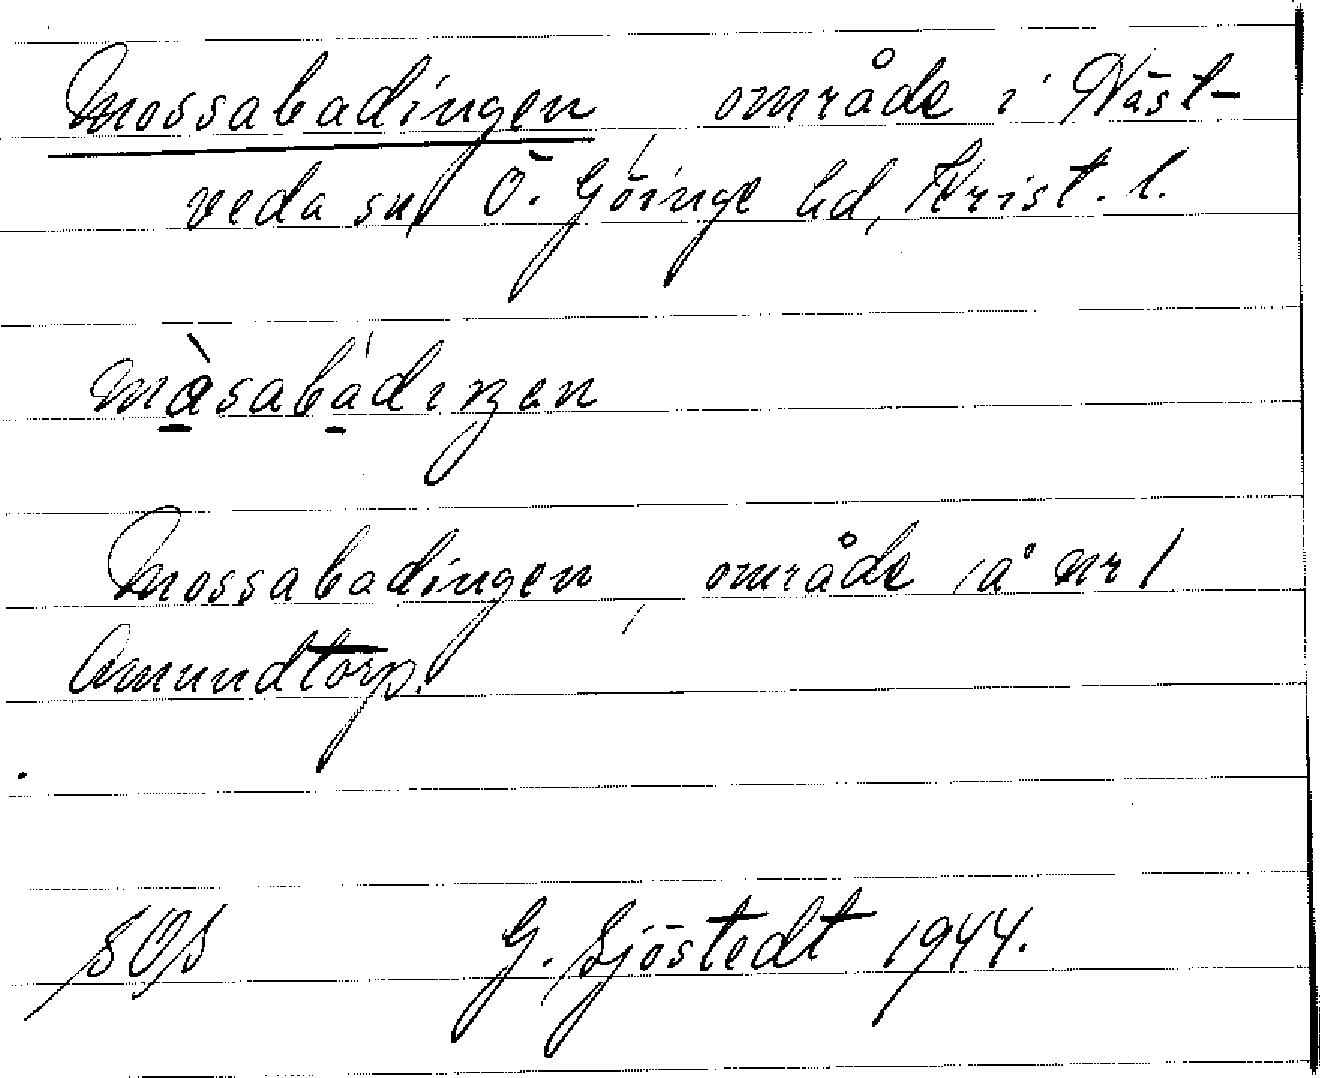 Mossabadingen, område i Näst-
veda sn, Ö. Göinge hd, Krist. l.
må̀sabádiŋen
Mossabadingen, område å nr 1
Amundtorp.
SOS G. Sjöstedt 1944.